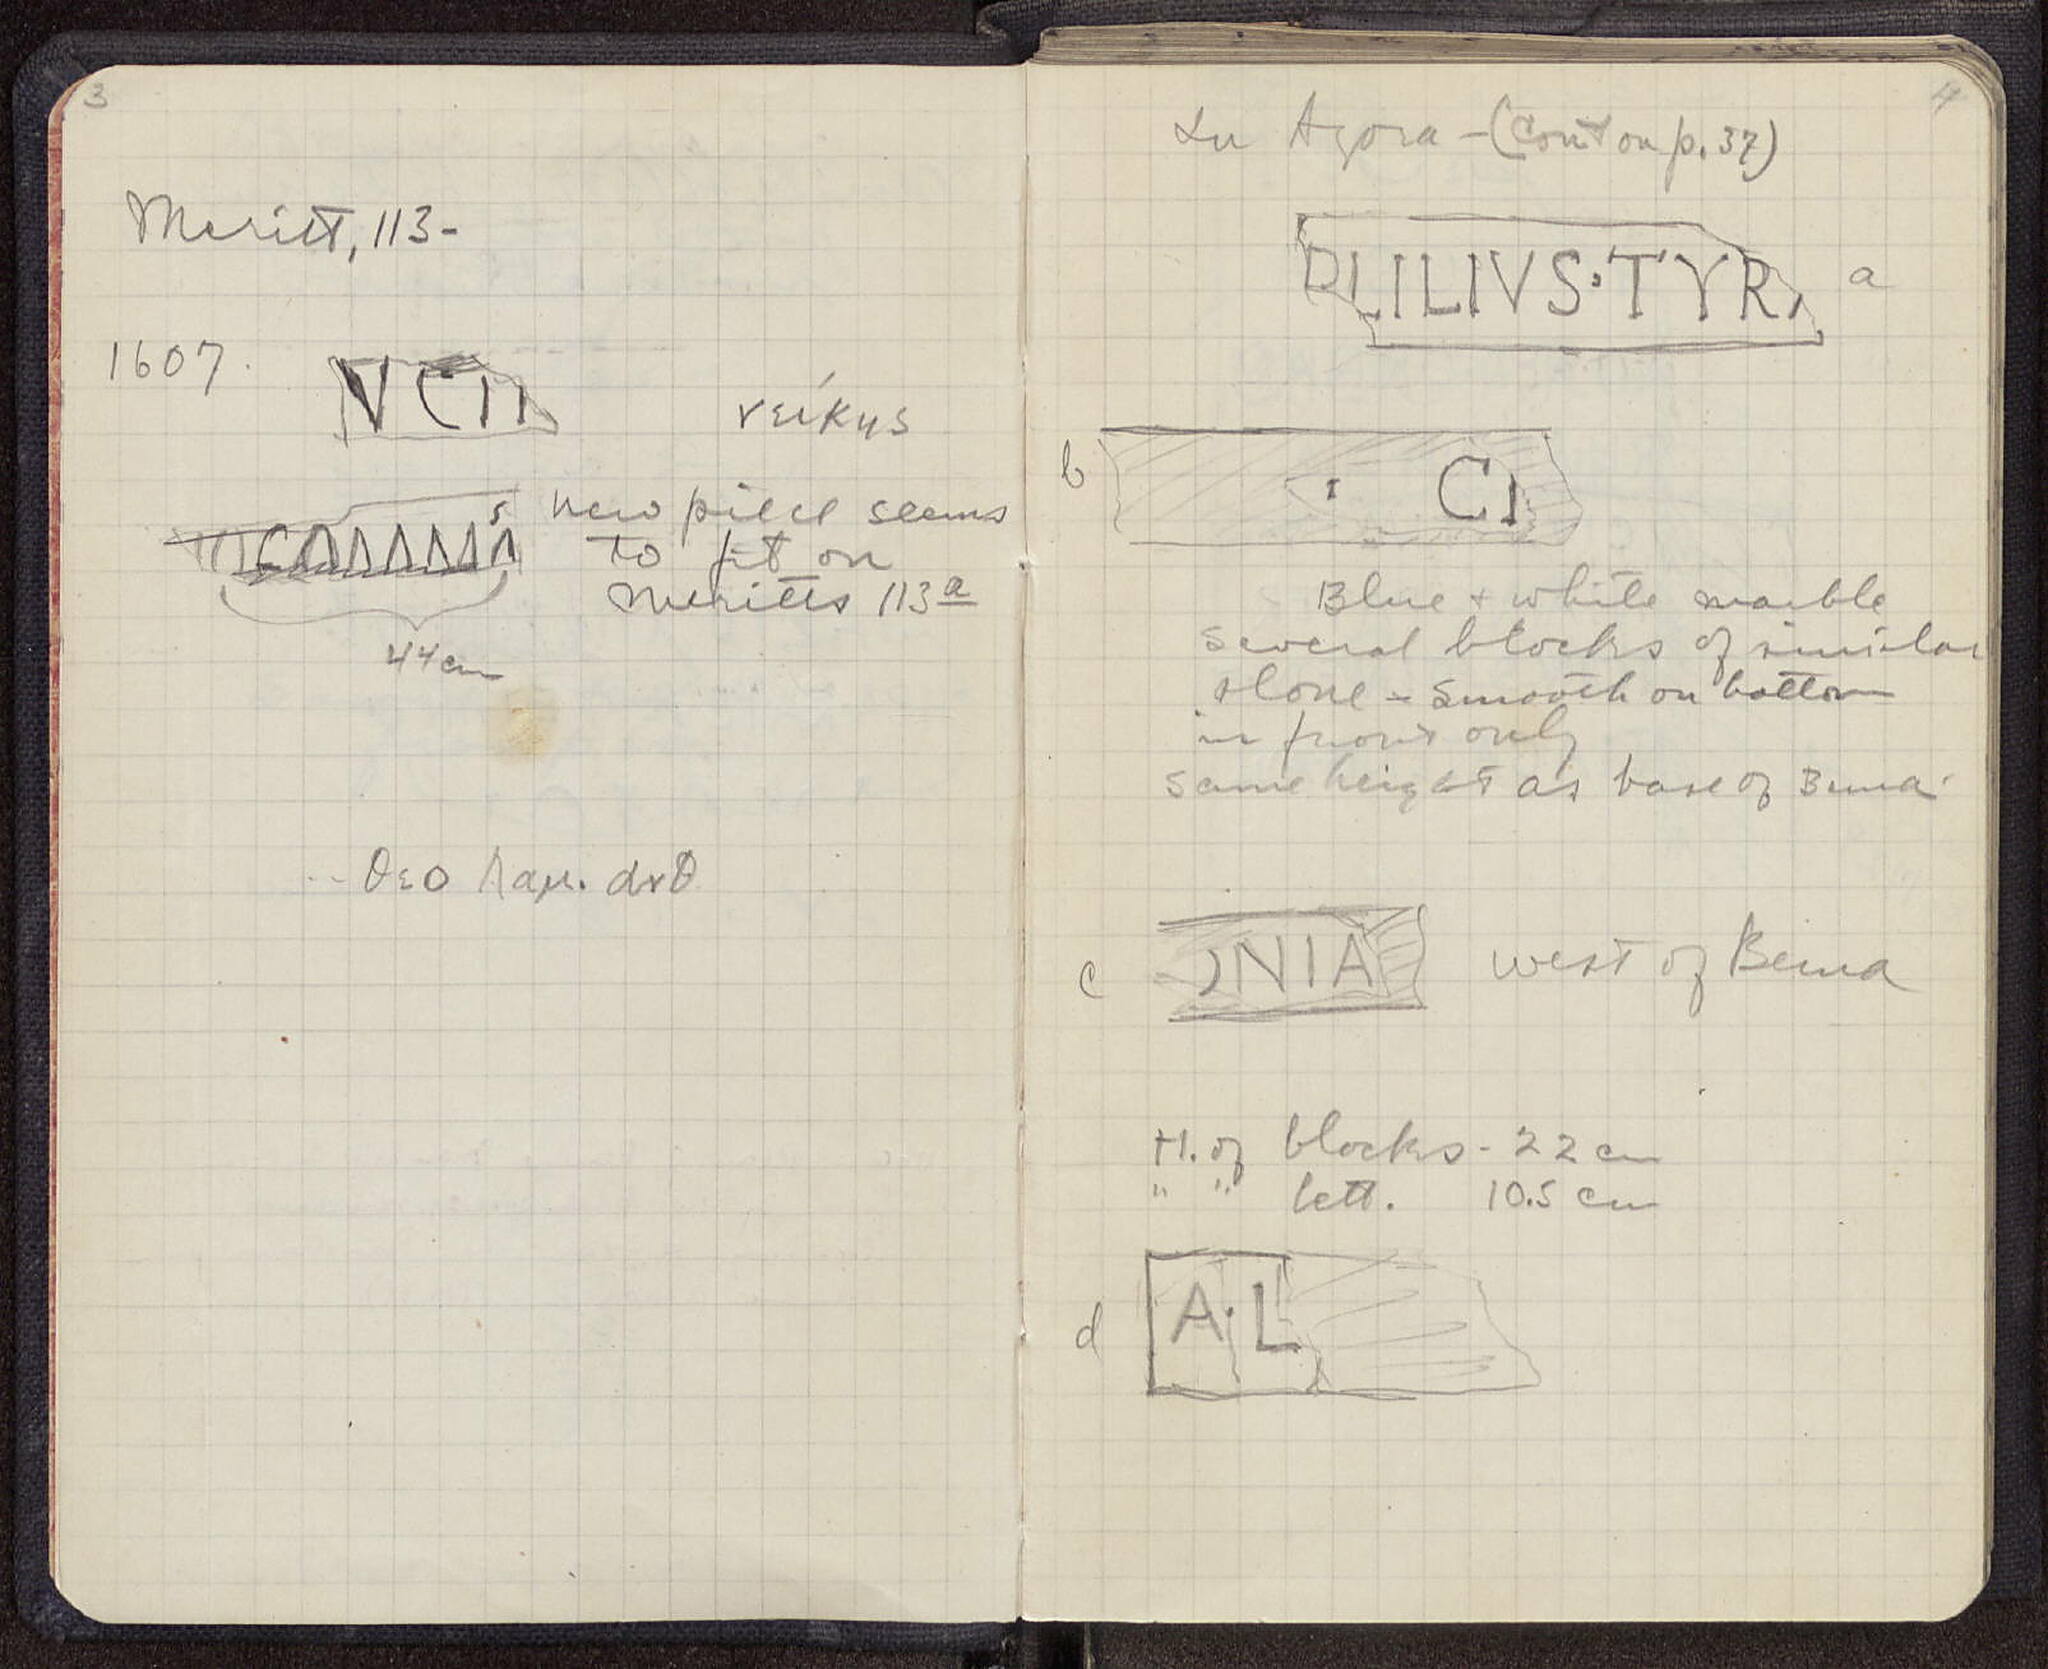 3
Meritt, 113-
1607.
νείκης
new piece seems
to fit on
Meritts 113a
44 cm
θεο λαμ. 
4
In Agora - (Cont on p. 37)
LILIVS·TYR
a
b
· CI
Blue + white marble
several blocks of similar
stone - smooth on bottom
in front only
same height as base of Bema
c
NIA
west of Bema
H. of blocks - 22 cm
" " lett. 10.5 cm
d
A·L